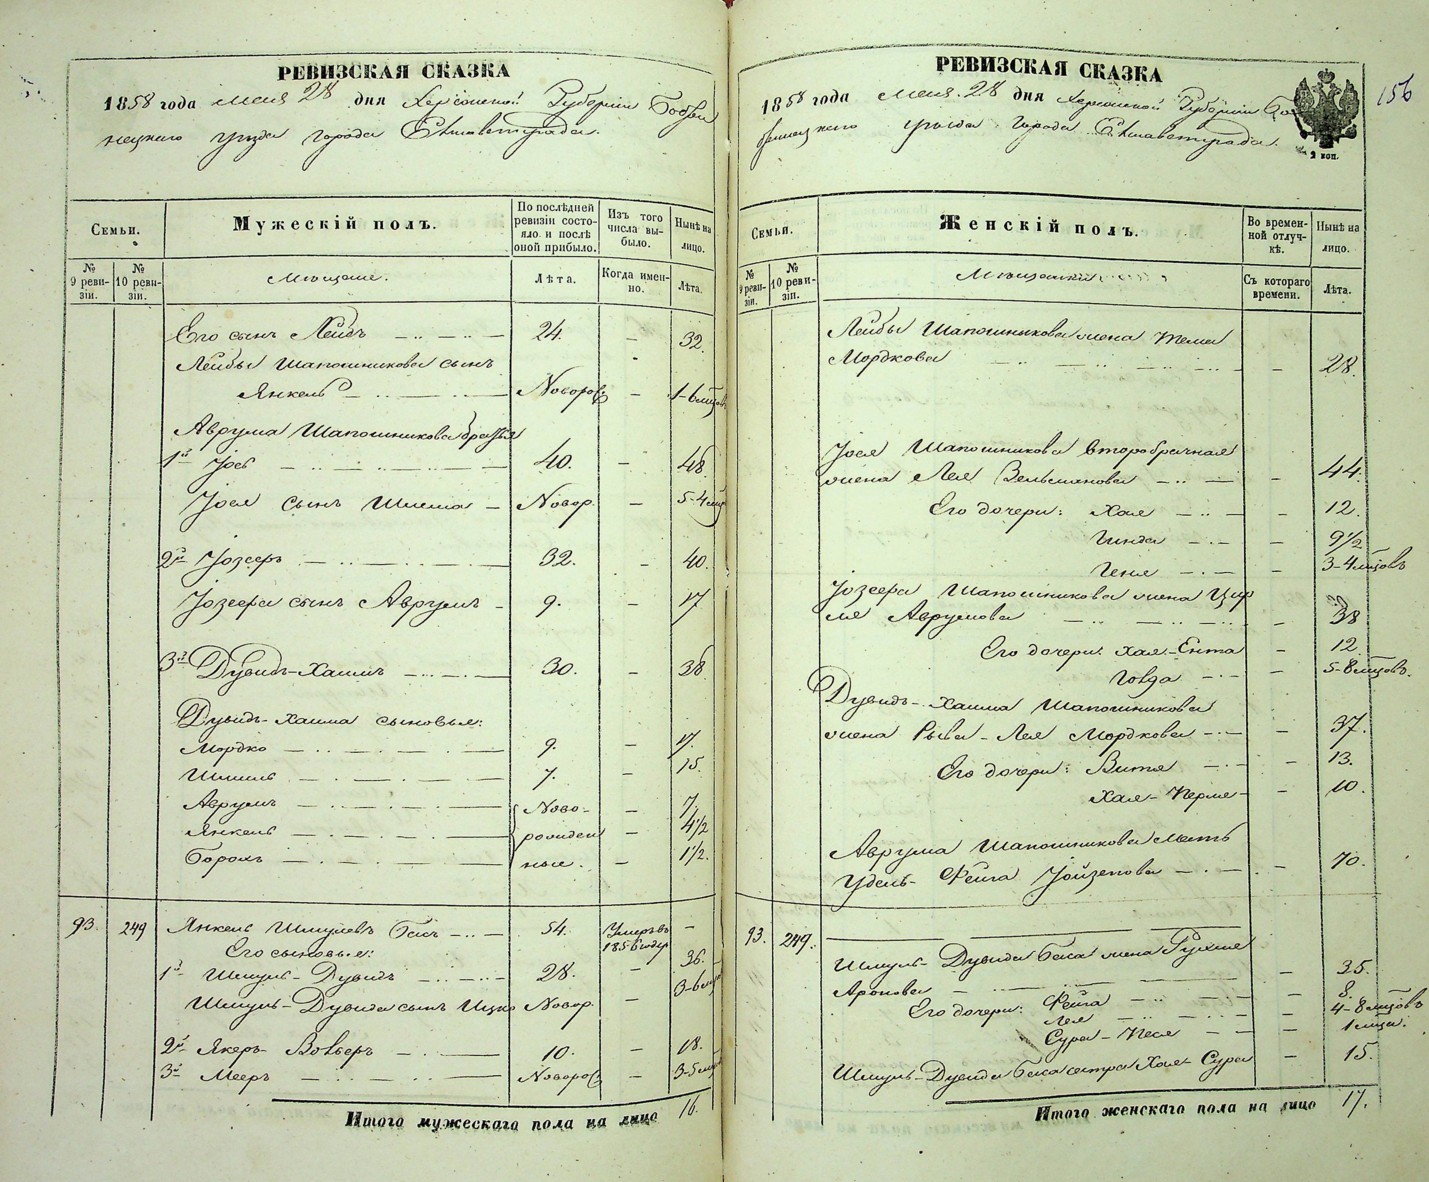 РЕВИЗСКАЯ СКАЗКА
1858 года мая 28 дня Херсонской Губерніи Бобри
нецкаго уезда города Елисаветграда.
Семьи.
Мужескій полъ.
По послѣдней ревизіи состояло и послѣ оной прибыло.
Изъ того числа выбыло.
Нынѣ на лицо.
№ 9 ревизіи.
№ 10 ревизіи.
Мѣщане.
Лѣта.
Когда именно.
Лѣта.
Его сынъ Лейбъ 24. – 32.
Лейбы Шапошникова сынъ
Янкель Новорож – 1-6 мцов
Аврума Шапошникова братья
1й Іось 40. – 48.
Іося сынъ Шлема Новор. – 5-4 мц
2й Іозефъ 32. – 40.
Іозефа сынъ Аврумъ 9. – 17
3й Дувидъ-Хаимъ 30. – 38.
Дувидъ-Хаима сыновья:
Мордко 9. – 17.
Шмиль 7. – 15.
Аврумъ Ново- – 7.
Янкель рожден – 4 1/2
Борохъ ные. – 1 1/2.
93. 249 Янкель Шмулевъ Басъ 54. Умеръ въ 1856 году –
Его сыновья:
1й Шмуль-Дувидъ 28. – 36.
Шмуль-Дувида сынъ Ицко Новор. – 3-6 мц
2й Якеръ-Вольфъ 10. – 18.
3й Мееръ Новорож – 3-5 мц
Итого мужескаго пола на лицо 16.
РЕВИЗСКАЯ СКАЗКА
156
1858 года мая 28 дня Херсонской Губерніи Бо
бринецкаго уезда города Елисаветграда.
2 коп.
Семьи.
Женскій полъ.
Во временной отлучкѣ.
Нынѣ на лицо.
№ 9 ревизіи.
№ 10 ревизіи.
Мѣщански
Съ котораго времени.
Лѣта.
Лейбы Шапошникова жена Тема
Мордкова – 28.
Іося Шапошникова второбрачная
жена Лея Зельмановa – 44.
Его дочери: Хая – 12.
Гинда – 9 1/2
Геня – 3-4 мцовъ
Іозефа Шапошникова жена Цир
ля Аврумова – 38
Его дочери: Хая-Ента – 12.
Говда – 5-8 мцовъ.
Дувидъ-Хаима Шапошникова
жена Рыва-Лея Мордкова – 37.
Его дочери: Витя – 13.
Хая-Перля – 10.
Аврума Шапошникова мать
Удель-Фейга Іойзепова – 70.
93. 249.
Шмуль-Дувида Баса жена Рухля
Аронова – 35.
Его дочери: Фейга – 8.
Лея – 4-8 мцовъ
Сура-Песя – 1 мца.
Шмуль-Дувида Баса сестра Хая-Сура – 15.
Итого женскаго пола на лицо 17.